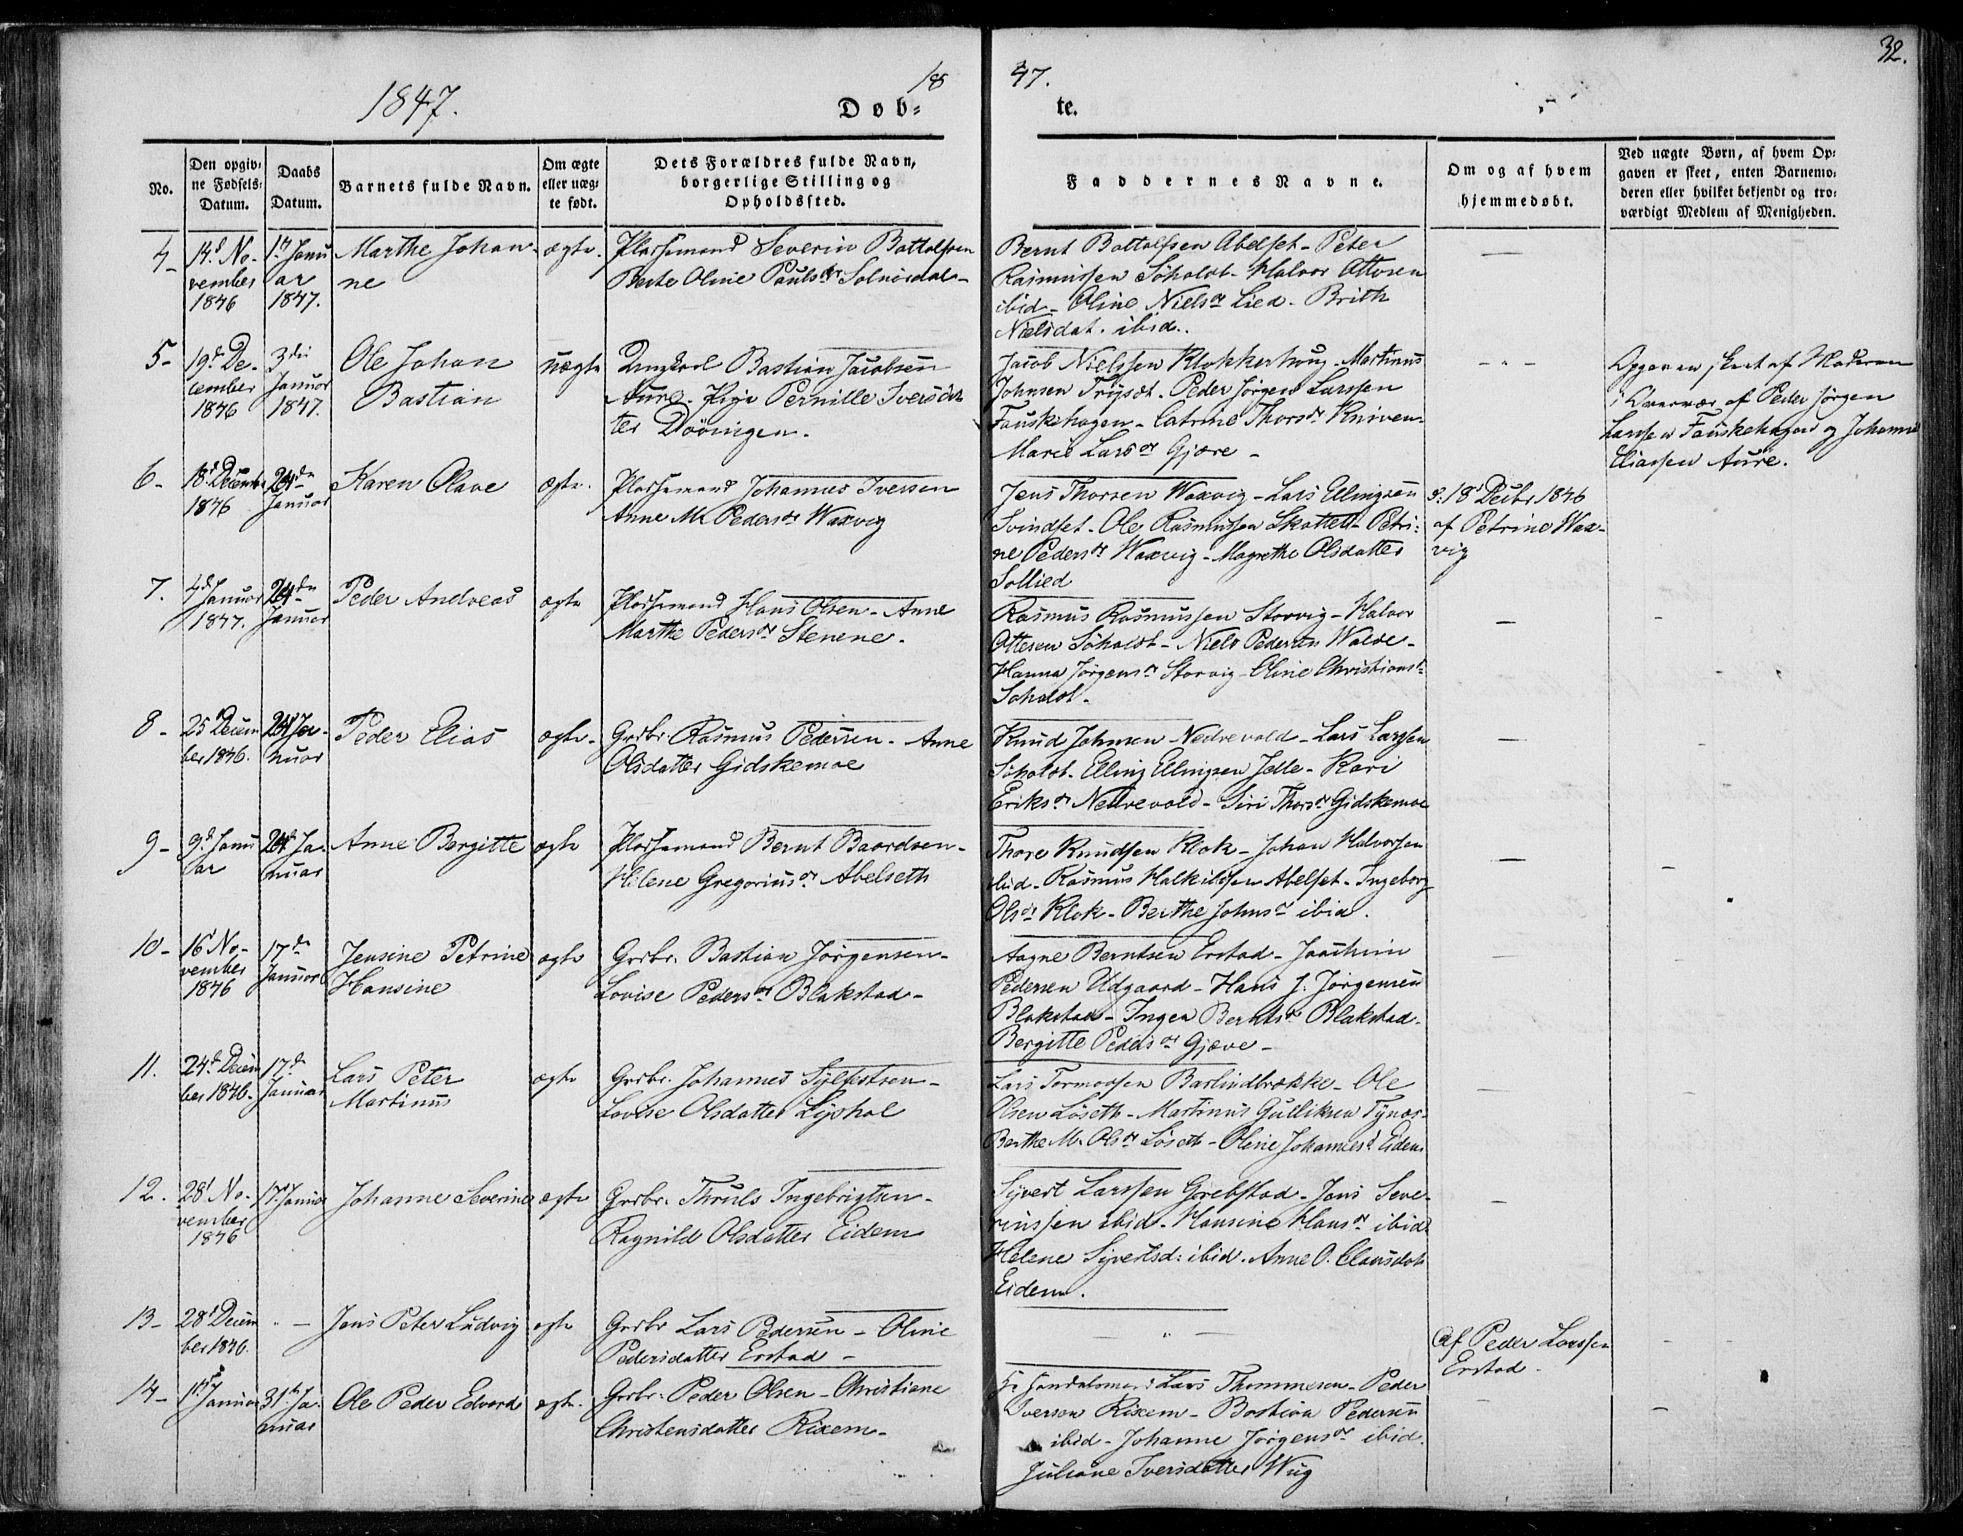 32.
18
47.
1847.
Døb-
te.
No.
Den opgiv-
ne Fødsels-
Datum.
Daabs
Datum.
Barnets fulde Navn.
Om ægte
eller uæg-
te født.
Dets Forældres fulde Navn,
borgerlige Stilling og
Opholdssted.
Faddernes Navne.
Om og af hvem
hjemmedøbt.
Ved uægte Børn, af hvem Op-
gaven er skeet, enten Barnemo-
deren eller hvilket bekjendt og tro-
værdigt Medlem af Menigheden.
4-
14d No-
vember
1846
1ste Janu
ar
1847.
Marthe Johan-
ne
ægte.
Pladsemand Severin Bottolfsen
Berte Oline Paulsdr Solnørdal-
Bernt Bottolfsen Abelset- Peter
Rasmussen Søholdt- Halvor Ottosen
ibid- Oline Nielsdr Lied. Brith
Nielsdat. ibid.
5-
19d De-
cember
1846
3die
Januar
1847.
Ole Johan
Bastian
uægte
Ungkarl Bastian Jacobsen
Aure. Pige Pernille Iversdat-
ter Dööningen.
Jacob Nielssen Klokkerhoug. Martinus
Johnsen Frøysdt. Peder Jørgen Larssen
Fauskehagen- Catrine Thorsdr Kniven-
Maree Larsdr Gjære-
Opgaven skeet af Moderen
i Overvær af Peder Jørgen
Larssen Fauskehagen og Johanne
Eliassen Aure.
6-
18d Decemb
1846
24de
Januar
Karen Olave
ægte.
Pladsemand Johannes Iversen
Anne M. Pedersdr Waxvig
Jens Thorsen Waxvig- Lars Ellingsen
Svindset- Ole Rasmussen Skottet- Petri-
ne Pedersdr Waxvig- Magrethe Olsdatter
Sollied
d. 18 Decbr 1846
af Petrine Wax-
vig
7.
4d Januar
1847.
24de
Januar
Peder Andreas
ægte
Pladsemand Hans Olsen- Anne
Marthe Pedersdr Stenene.
Rasmus Rasmussen Storvig- Halvor
Ottesen Søholdt- Niels Pedersen Walde-
Hanna Jørgensdr Storvig- Oline Christiansd.
Soholdt.
8-
25 Decem
ber 1846.
24d Ja-
nuar
Peder Elias
ægte.
Grdbr. Rasmus Pedersen- Anne
Olsdatter Gidskemoe
Knud Johnsen- Nedrevold- Lars Larssen
Søholdt- Elling Ellingsen Jelle- Kari
Eriksdr Nedrevold- Siri Thorsdr Gidskemoe
9-
9d Janu
ar
24d Ja-
nuar
Anne Bergitte
ægte
Pladsemand Bernt Baardsen-
Hilene Gregoriusdr Abelseth
Thore Knudsen Klok- Johan Halvorsen
ibid- Rasmus Halkildsen Abelset- Ingeborg
Olsdr Klok- Berthe Johnsdr ibid.
10-
16 No-
vember
1846
17de
Januar
Jensine Petrine
Hansine
ægte
Grdbr. Bastian Jørgensen-
Lovise Pedersdr Blakstad-
Aagne Berntsen Erstad- Joachim
Pedersen Udgaard- Hans J. Jørgensen
Blakstad- Inger Berntsdr Blakstad-
Bergitte Pedersdr Gjæve-
11.
24d Decem
ber 1846.
17de
Januar
Lars Peter
Martinus
ægte
Grdbr. Johannes Sylfestsen-
Lovise Olsdatter Lyshol
Lars Tormodsen Barlindbrække- Ole
Olsen Løseth- Martinus Gulliksen Tynæs-
Berthe M. Olsdr Løseth- Oline Johannesd. Eidem
12.
28d No-
vember
1846
17d Januar
Johanne Severine
ægte
Grdbr. Thruls Ingebrigtsen-
Ragnild Olsdatter Eidem
Syvert Larssen Grebstad- Jens Seve-
rinssen ibid- Hansine Hansdr ibid
Helene Syvertsd: ibid. Anne O. Clausdat
Eidem.
13-
28d Decem
ber 1846.
Jens Peter Ludvig
ægte
Grdbr Lars Pedersen- Oline
Pedersdatter Erstad-
Af Peder Larssen
Erstad.
14-
1ste Januar
31te Ja-
nuar
Ole Peder Edvard
ægte.
Grdbr. Peder Olsen- Christiane
Christensdatter Rixem-
Lars Thommesen- Peder
Iversen Rixem- Bastian Pedersen
ibid- Johanne Jørgensdr ibid.
Juliane Iversdatter Wiig